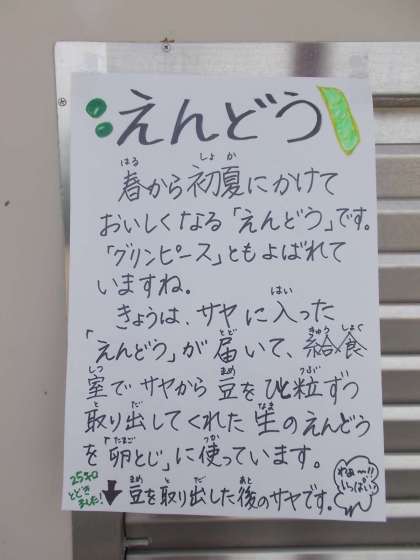 えんどう
春から初夏にかけて
おいしくなる「えんどう」です。
「グリンピース」ともよばれて
いますね。
きょうは、サヤに入った
「えんどう」が届いて、給食
室でサヤから豆をひと粒ずつ
取り出してくれた生のえんどう
を「卵とじ」に使っています。
25キロ
とどき
ました!
豆を取り出した後のサヤです。
わぁ〜!!
いっぱい!